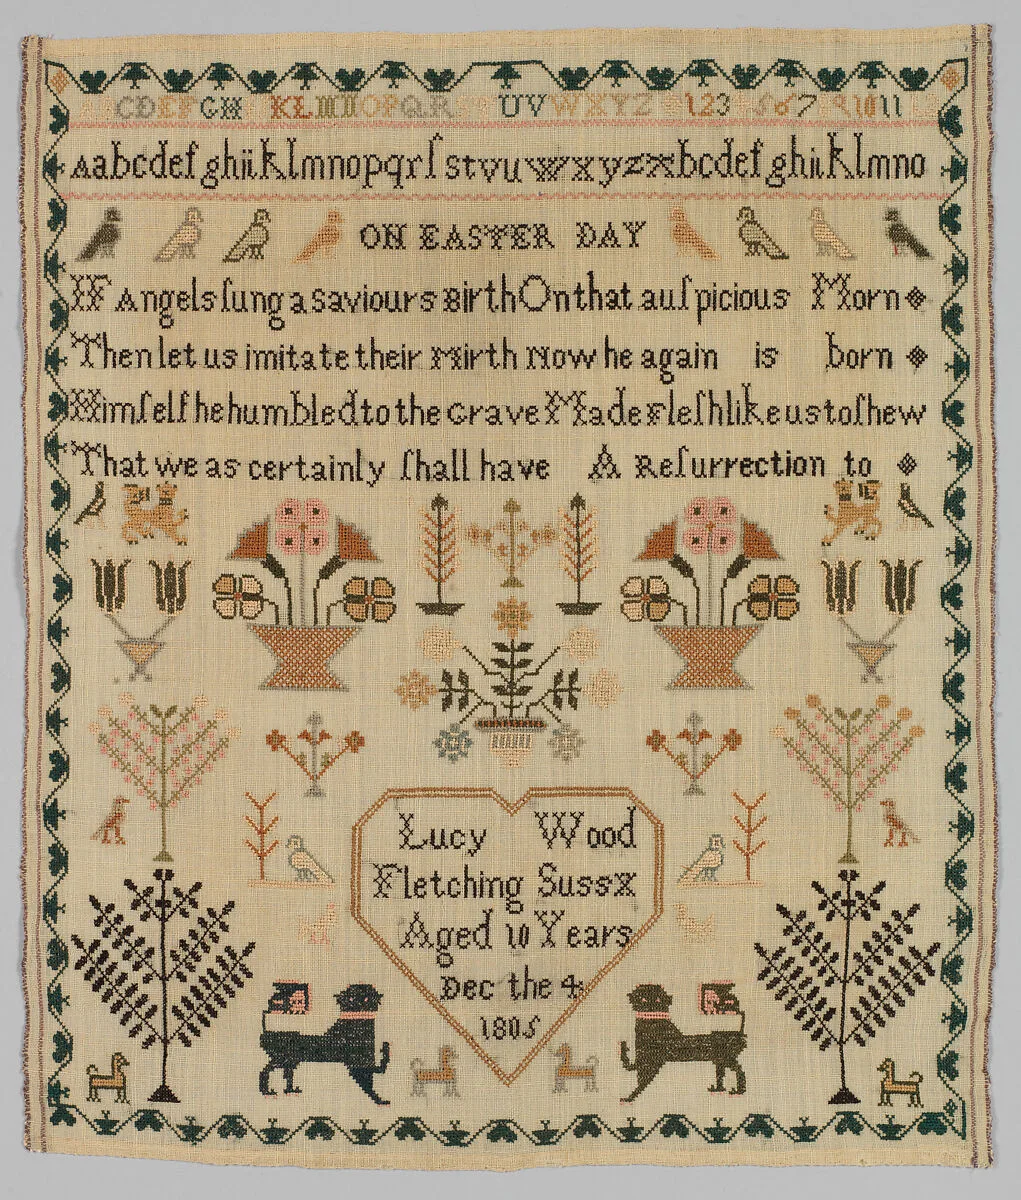 CDEFGH KLMNOPQR UVWXYZ 123 567 1011
Aabcdefghiiklmnopqrſstvuwxyzxbcdefghiiklmno
ON EASTER DAY
IF Angels ſung a Saviours Birth On that auſpicious Morn
Then let us imitate their Mirth Now he again is born
Himſelf he humbled to the Grave Made Fleſh like us to ſhew
That we as certainly ſhall have A Reſurrection to
Lucy Wood
Fletching Sussx
Aged 10 Years
Dec the 4
1805